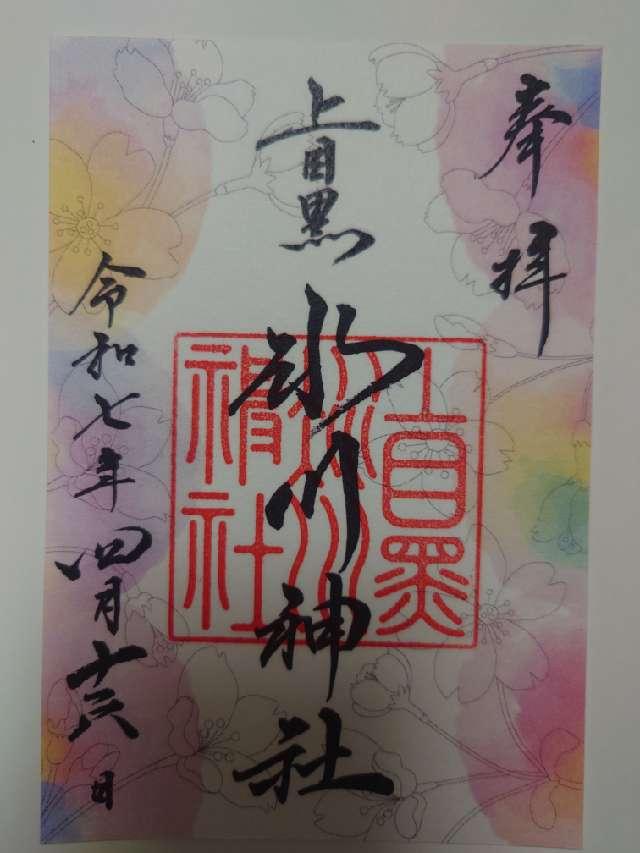 奉拝
上目黒
氷川神社
令和七年四月十六日
上目黒
氷川
神社